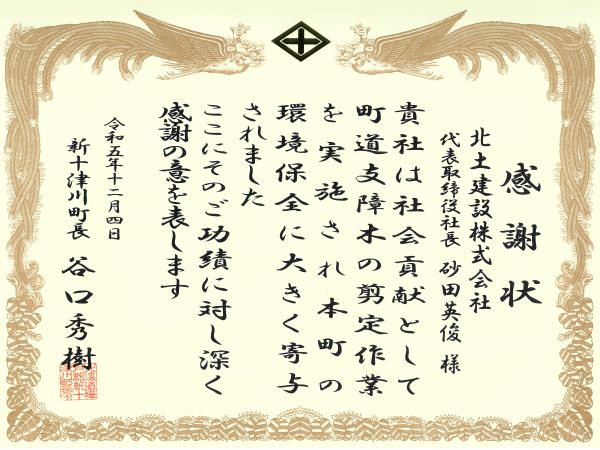 感謝状
北土建設株式会社
代表取締役社長 砂田英俊 様
貴社は社会貢献として
町道支障木の剪定作業
を実施され本町の
環境保全に大きく寄与
されました
ここにそのご功績に対し深く
感謝の意を表します
令和五年十二月四日
新十津川町長 谷口秀樹